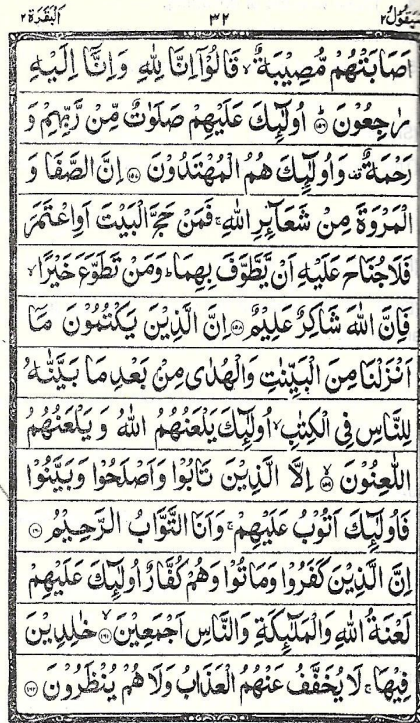 سَيَقُولُ ٢ ٣٢ اَلْبَقَرَة ٢
اَصَابَتْهُمْ مُّصِيْبَةٌ ۙ قَالُوْٓا اِنَّا لِلّٰهِ وَاِنَّآ اِلَيْهِ
رٰجِعُوْنَ ﴿١٥٦﴾ اُولٰٓئِكَ عَلَيْهِمْ صَلَوٰتٌ مِّنْ رَّبِّهِمْ وَ
رَحْمَةٌ ۟ وَاُولٰٓئِكَ هُمُ الْمُهْتَدُوْنَ ﴿١٥٧﴾ اِنَّ الصَّفَا وَ
الْمَرْوَةَ مِنْ شَعَآئِرِ اللّٰهِ ۚ فَمَنْ حَجَّ الْبَيْتَ اَوِاعْتَمَرَ
فَلَاجُنَاحَ عَلَيْهِ اَنْ يَّطَّوَّفَ بِهِمَا ؕ وَمَنْ تَطَوَّعَ خَيْرًا ۙ
فَاِنَّ اللّٰهَ شَاكِرٌ عَلِيْمٌ ﴿١٥٨﴾ اِنَّ الَّذِيْنَ يَكْتُمُوْنَ مَآ
اَنْزَلْنَا مِنَ الْبَيِّنٰتِ وَالْهُدٰى مِنْۢ بَعْدِ مَا بَيَّنّٰهُ
لِلنَّاسِ فِى الْكِتٰبِ ۙ اُولٰٓئِكَ يَلْعَنُهُمُ اللّٰهُ وَيَلْعَنُهُمُ
اللّٰعِنُوْنَ ۙ﴿١٥٩﴾ اِلَّا الَّذِيْنَ تَابُوْا وَاَصْلَحُوْا وَبَيَّنُوْا
فَاُولٰٓئِكَ اَتُوْبُ عَلَيْهِمْ ۚ وَاَنَا التَّوَّابُ الرَّحِيْمُ ﴿١٦٠﴾
اِنَّ الَّذِيْنَ كَفَرُوْا وَمَاتُوْا وَهُمْ كُفَّارٌ اُولٰٓئِكَ عَلَيْهِمْ
لَعْنَةُ اللّٰهِ وَالْمَلٰٓئِكَةِ وَالنَّاسِ اَجْمَعِيْنَ ۙ﴿١٦١﴾ خٰلِدِيْنَ
فِيْهَا ۚ لَا يُخَفَّفُ عَنْهُمُ الْعَذَابُ وَلَا هُمْ يُنْظَرُوْنَ ﴿١٦٢﴾